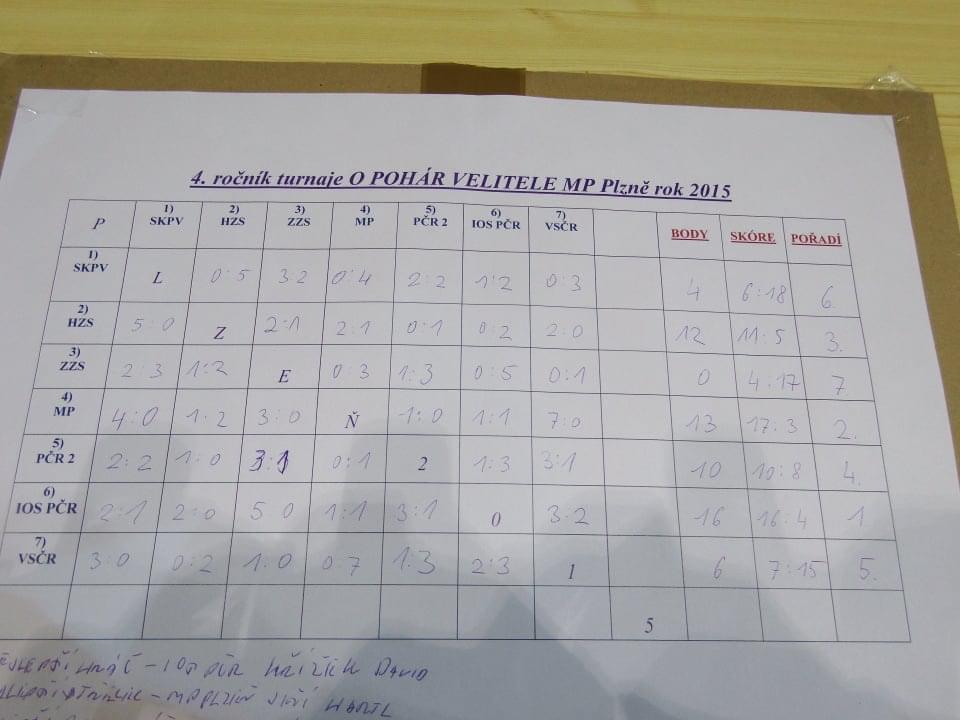 4. ročník turnaje O POHÁR VELITELE MP Plzně rok 2015
P 1) SKPV 2) HZS 3) ZZS 4) MP 5) PČR 2 6) IOS PČR 7) VSČR BODY SKÓRE POŘADÍ
1) SKPV L 0:5 3 2 0:4 2:2 1:2 0:3 4 6:18 6.
2) HZS 5:0 Z 2:1 2:1 0:1 0:2 2:0 12 11:5 3.
3) ZZS 2:3 1:2 E 0:3 1:3 0:5 0:1 0 4:17 7
4) MP 4:0 1:2 3:0 Ň 1:0 1:1 7:0 13 17:3 2.
5) PČR 2 2:2 1:0 3:1 0:1 2 1:3 3:1 10 10:8 4.
6) IOS PČR 2:1 2:0 5 0 1:1 3:1 0 3:2 16 16:4 1
7) VSČR 3:0 0:2 1:0 0:7 1:3 2:3 1 6 7:15 5.
5
HRÁČ - IOS PČR DAVID
- MP PLZEŇ JIŘÍ